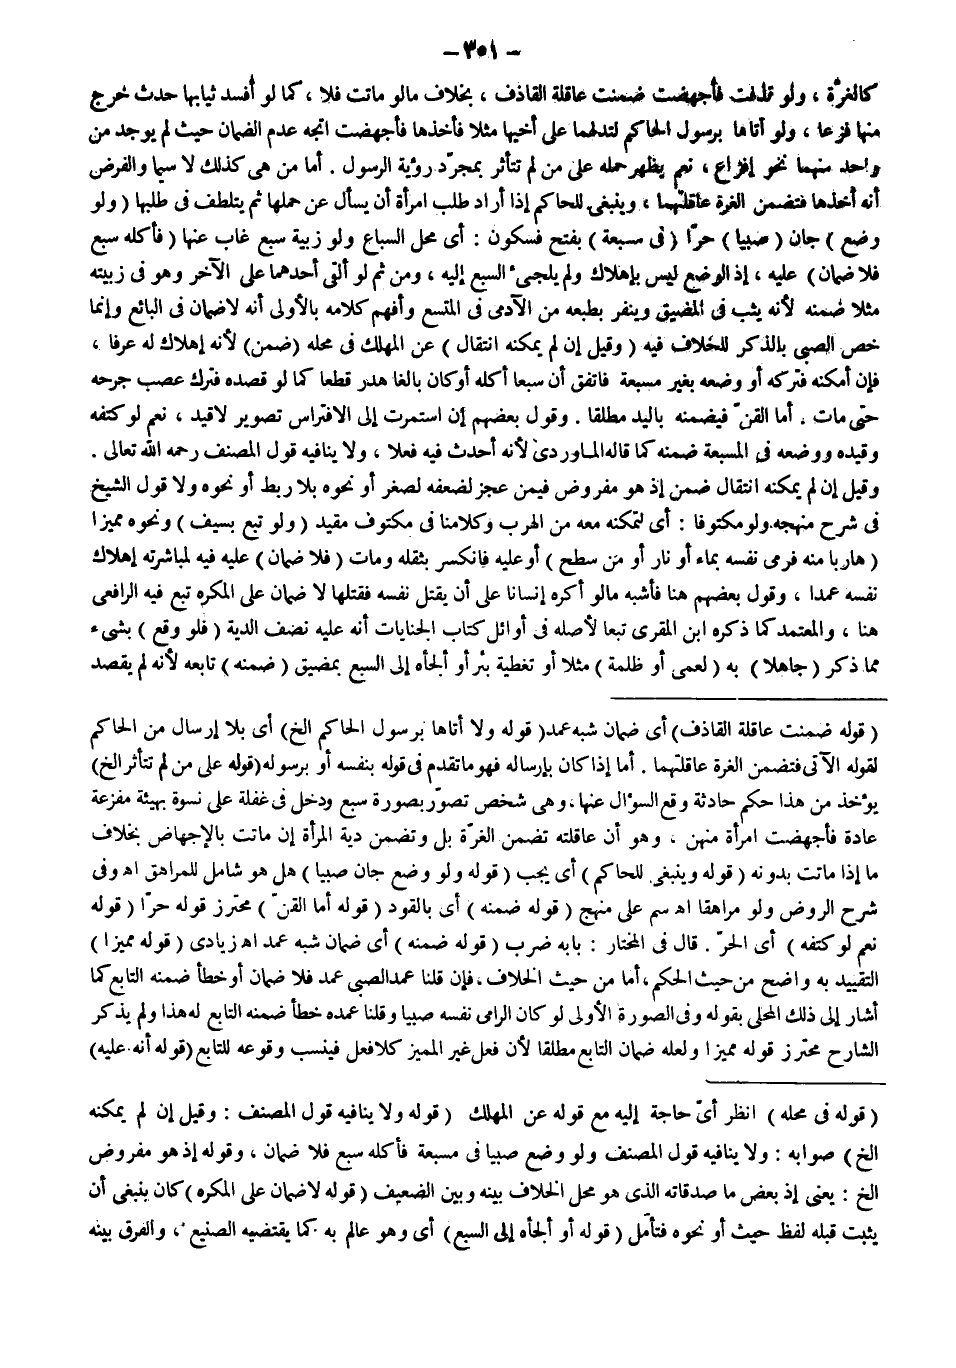 - ٣٥١ -
كالغرّة ، ولو قذفت فأجهضت ضمنت عاقلة القاذف ، بخلاف مالو ماتت فلا ، كما لو أفسد ثيابها حدث خرج
منها فزعا ، ولو أتاها برسول الحاكم لتدلهما على أخيها مثلا فأخذها فأجهضت اتجه عدم الضمان حيث لم يوجد من
واحد منهما نحو إفزاع ، نعم يظهر حمله على من لم تتأثر بمجرّد رؤية الرسول . أما من هى كذلك لا سيما والفرض
أنه أخذها فتضمن الغرة عاقلتهما ، وينبغى للحاكم إذا أراد طلب امرأة أن يسأل عن حملها ثم يتلطف فى طلبها ( ولو
وضع ) جان ( صبيا ) حرّا ( فى مسبعة ) بفتح فسكون : أى محل السباع ولو زبية سبع غاب عنها ( فأكله سبع
فلا ضمان ) عليه ، إذ الوضع ليس بإهلاك ولم يلجىء السبع إليه ، ومن ثم لو ألقى أحدهما على الآخر وهو فى زبيته
مثلا ضمنه لأنه يثب فى المضيق وينفر بطبعه من الآدمى فى المتسع وأفهم كلامه بالأولى أنه لاضمان فى البائع وإنما
خص الصبى بالذكر للخلاف فيه ( وقيل إن لم يمكنه انتقال ) عن المهلك فى محله (ضمن) لأنه إهلاك له عرفا ،
فإن أمكنه فتركه أو وضعه بغير مسبعة فاتفق أن سبعا أكله أوكان بالغا هدر قطعا كما لو قصده فترك عصب جرحه
حتى مات . أما القنّ فيضمنه باليد مطلقا . وقول بعضهم إن استمرت إلى الافتراس تصوير لاقيد ، نعم لو كتفه
وقيده ووضعه فى المسبعة ضمنه كما قاله الماوردى لأنه أحدث فيه فعلا ، ولا ينافيه قول المصنف رحمه الله تعالى .
وقيل إن لم يمكنه انتقال ضمن إذ هو مفروض فيمن عجز لضعفه لصغر أو نحوه بلا ربط أو نحوه ولا قول الشيخ
فى شرح منهجه ولو مكتوفا : أى لتمكنه معه من الهرب وكلامنا فى مكتوف مقيد ( ولو تبع بسيف ) ونحوه مميزا
( هاربا منه فرمى نفسه بماء أو نار أو من سطح ) أو عليه فانكسر بثقله ومات ( فلا ضمان ) عليه فيه لمباشرته إهلاك
نفسه عمدا ، وقول بعضهم هنا فأشبه مالو أكره إنسانا على أن يقتل نفسه فقتلها لا ضمان على المكره تبع فيه الرافعى
هنا ، والمعتمد كما ذكره ابن المقرى تبعا لأصله فى أوائل كتاب الجنايات أنه عليه نصف الدية ( فلو وقع ) بشىء
مما ذكر ( جاهلا ) به ( لعمى أو ظلمة ) مثلا أو تغطية بئر أو ألجأه إلى السبع بمضيق ( ضمنه ) تابعه لأنه لم يقصد
( قوله ضمنت عاقلة القاذف) أى ضمان شبه عمد ( قوله ولا أتاها برسول الحاكم الخ ) أى بلا إرسال من الحاكم
لقوله الآتى فتضمن الغرة عاقلتهما . أما إذا كان بإرساله فهو ماتقدم فى قوله بنفسه أو برسوله (قوله على من لم تتأثر الخ)
يؤخذ من هذا حكم حادثة وقع السؤال عنها ، وهى شخص تصوّر بصورة سبع ودخل فى غفلة على نسوة بهيئة مفزعة
عادة فأجهضت امرأة منهن ، وهو أن عاقلته تضمن الغرّة بل وتضمن دية المرأة إن ماتت بالإجهاض بخلاف
ما إذا ماتت بدونه ( قوله وينبغى للحاكم ) أى يجب ( قوله ولو وضع جان صبيا ) هل هو شامل للمراهق اه وفى
شرح الروض ولو مراهقا اه سم على منهج ( قوله ضمنه ) أى بالقود ( قوله أما القنّ ) محترز قوله حرّا ( قوله
نعم لو كتفه ) أى الحرّ . قال فى المختار : بابه ضرب ( قوله ضمنه ) أى ضمان شبه عمد اه زيادى ( قوله مميزا )
التقييد به واضح من حيث الحكم ، أما من حيث الخلاف ، فإن قلنا عمد الصبى عمد فلا ضمان أو خطأ ضمنه التابع كما
أشار إلى ذلك المحلى بقوله وفى الصورة الأولى لو كان الرامى نفسه صبيا وقلنا عمده خطأ ضمنه التابع له هذا ولم يذكر
الشارح محترز قوله مميزا ولعله ضمان التابع مطلقا لأن فعل غير المميز كلا فعل فينسب وقوعه للتابع (قوله أنه عليه)
( قوله فى محله ) انظر أىّ حاجة إليه مع قوله عن المهلك ( قوله ولا ينافيه قول المصنف : وقيل إن لم يمكنه
الخ ) صوابه : ولا ينافيه قول المصنف ولو وضع صبيا فى مسبعة فأكله سبع فلا ضمان ، وقوله إذ هو مفروض
الخ : يعنى إذ بعض ما صدقاته الذى هو محل الخلاف بينه وبين الضعيف ( قوله لاضمان على المكره ) كان ينبغى أن
يثبت قبله لفظ حيث أو نحوه فتأمل ( قوله أو ألجأه إلى السبع ) أى وهو عالم به كما يقتضيه الصنيع ، والفرق بينه